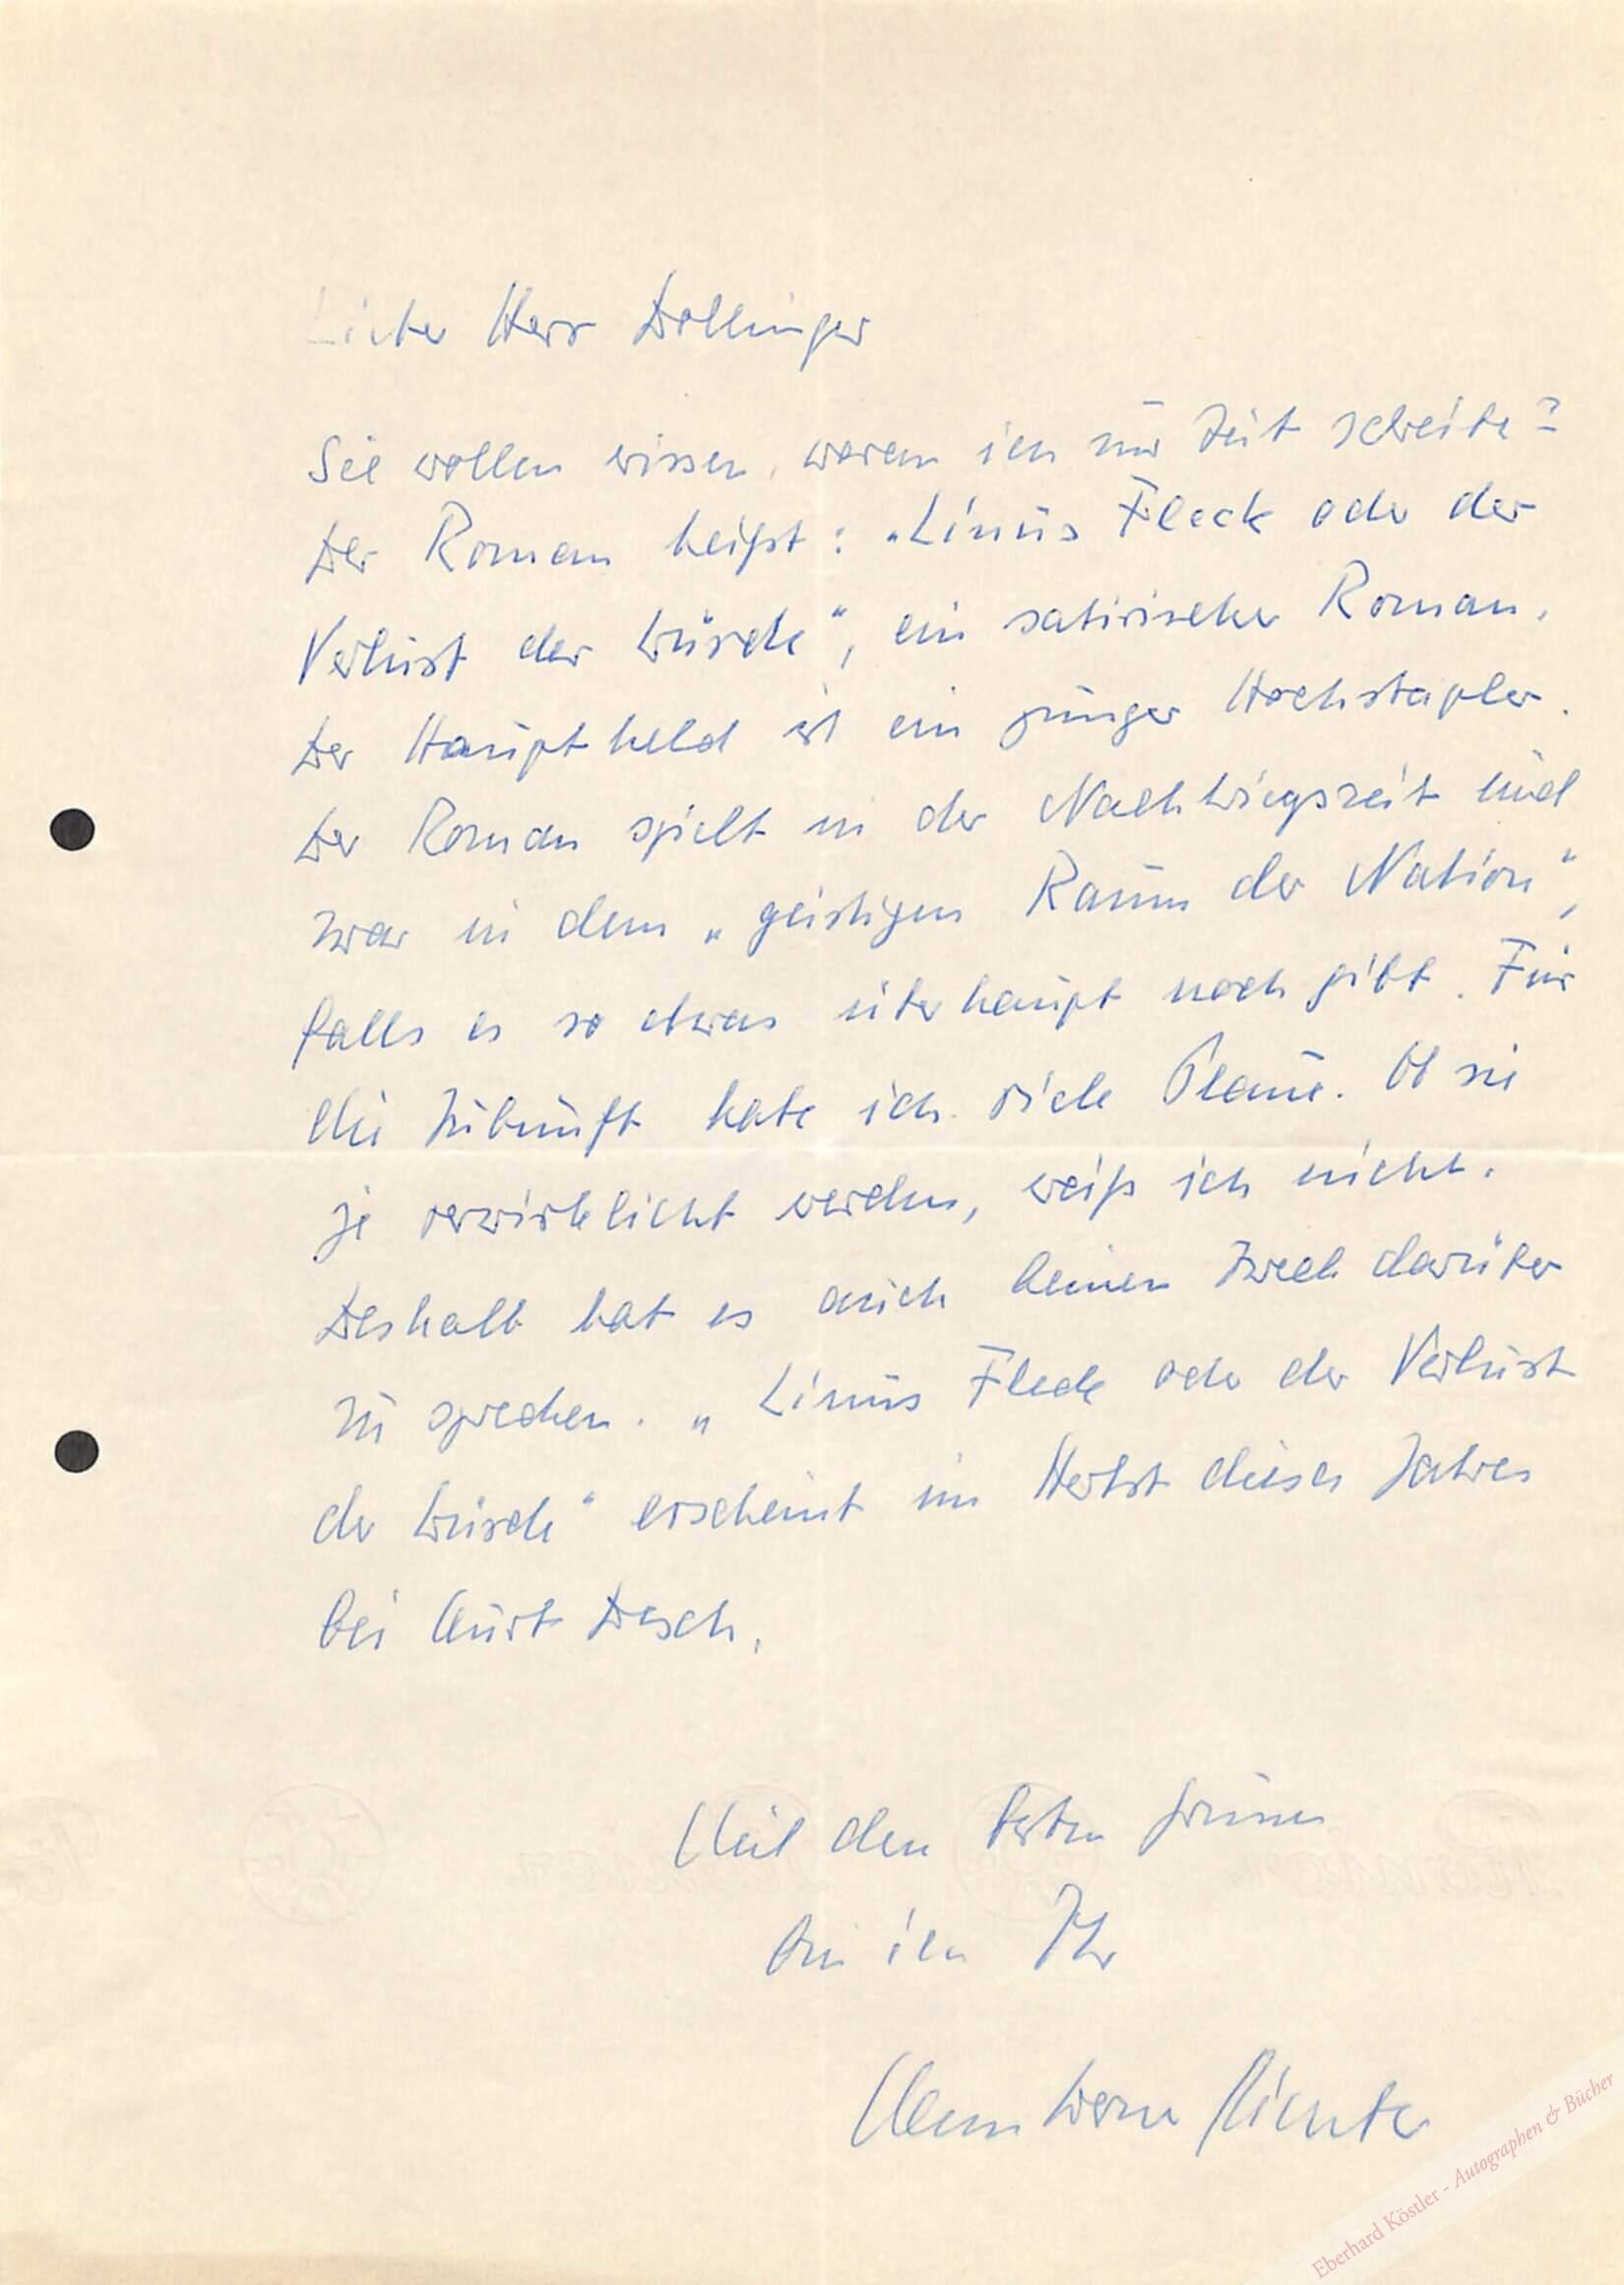 Lieber Herr Dollinger
Sie wollen wissen, woran ich zur Zeit schreibe?
Der Roman heißt: „Linus Fleck oder der
Verlust der Würde", ein satirischer Roman.
Der Hauptheld ist ein junger Hochstapler.
Der Roman spielt in der Nachkriegszeit und
zwar in dem „geistigen Raum der Nation",
falls es so etwas überhaupt noch gibt. Für
die Zukunft habe ich viele Pläne. Ob sie
je verwirklicht werden, weiß ich nicht.
Deshalb hat es auch keinen Zweck darüber
zu sprechen. „Linus Fleck oder der Verlust
der Würde" erscheint im Herbst dieses Jahres
bei Kurt Desch.
Mit den besten Grüssen
bin ich Ihr
Hans Werner Richter
Eberhard Köstler - Autographen & Bücher